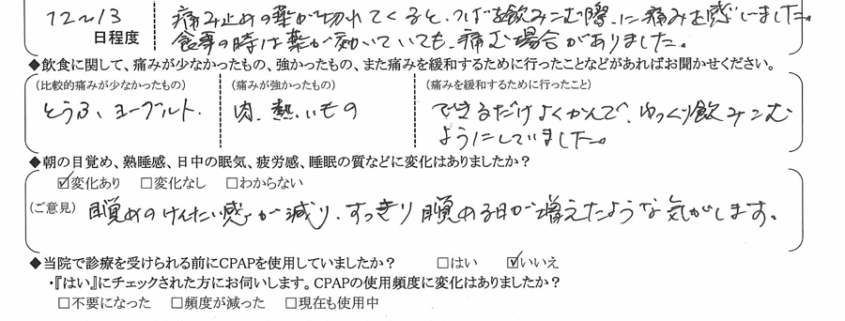 12〜13
日程度
痛み止めの薬が切れてくると、つばを飲みこむ際に痛みを感じました。
食事の時は薬が効いていても、痛む場合がありました。
◆飲食に関して、痛みが少なかったもの、強かったもの、また痛みを緩和するために行ったことなどがあればお聞かせください。
(比較的痛みが少なかったもの) (痛みが強かったもの) (痛みを緩和するために行ったこと)
とうふ、ヨーグルト. 肉、熱いもの できるだけよくかんで、ゆっくり飲みこむ
ようにしていました。
◆朝の目覚め、熟睡感、日中の眠気、疲労感、睡眠の質などに変化はありましたか？
☑変化あり □変化なし □わからない
(ご意見) 目覚めのけんたい感が減り、すっきり目覚める日が増えたような気がします。
◆当院で診療を受けられる前にCPAPを使用していましたか？ □はい ☑いいえ
・『はい』にチェックされた方にお伺いします。CPAPの使用頻度に変化はありましたか？
□不要になった □頻度が減った □現在も使用中